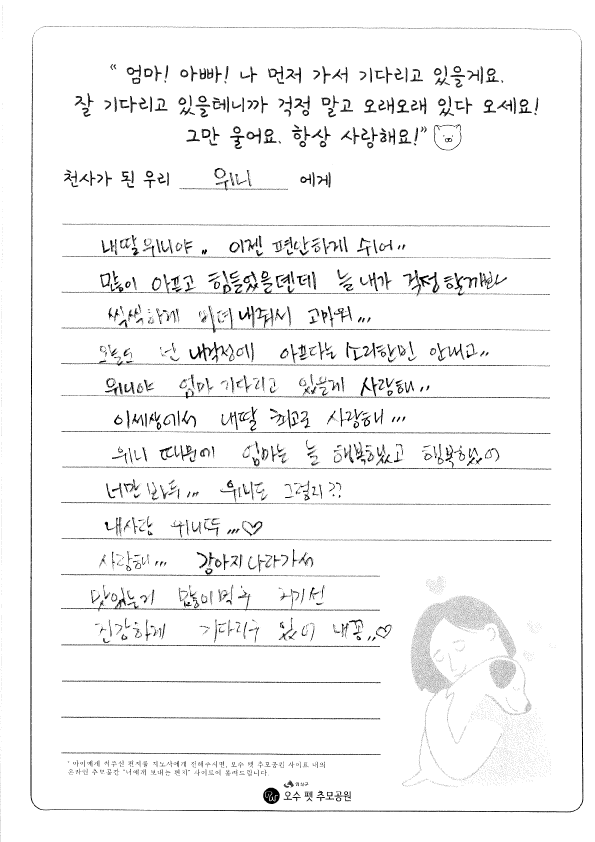 “ 엄마! 아빠! 나 먼저 가서 기다리고 있을게요.
잘 기다리고 있을테니까 걱정 말고 오래오래 있다 오세요!
그만 울어요. 항상 사랑해요!”
천사가 된 우리 위니 에게
내딸 위니야.. 이젠 편안하게 쉬어..
많이 아프고 힘들었을텐데 늘 내가 걱정할까봐
씩씩하게 버텨내줘서 고마워...
오늘도 넌 내걱정에 아프다는 소리한번 안내고..
위니야 엄마 기다리고 있을게 사랑해..
이세상에서 내딸 최고로 사랑해...
위니 때문에 엄마는 늘 행복했고 행복했어
너만 봐두... 위니도 그렇지??
내사랑 위니뚜...♡
사랑해... 강아지나라가서
맛있는거 많이먹구 거기선
건강하게 기다리구 있어 내꽁..♡
' 아이에게 적주신 편지를 지도사에게 전해주시면, 오수 펫 추모공원 사이트 내의
온라인 추모공간 "너에게 보내는 편지" 사이트에 올려드립니다.
임실군
오수 펫 추모공원